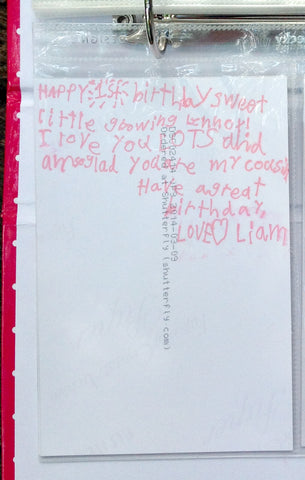 HAPPY 1st birthday sweet
little growing Lennon!
I love you LOTS and
am so glad you are my cousin
Have a great
birthday,
LOVE♡ Liam
2014-03-09
Ordered at Shutterfly (shutterfly.com)
DESIGN